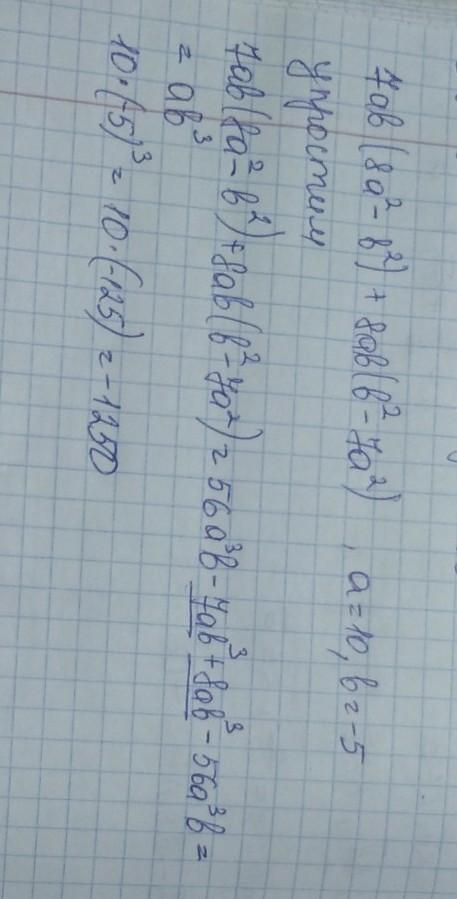 7ab(8a² - b²) + 8ab(b² - 7a²) , a = 10, b = -5
упростим
7ab(8a² - b²) + 8ab(b² - 7a²) = 56a³b - 7ab³ + 8ab³ - 56a³b =
= ab³
10·(-5)³ = 10·(-125) = -1250